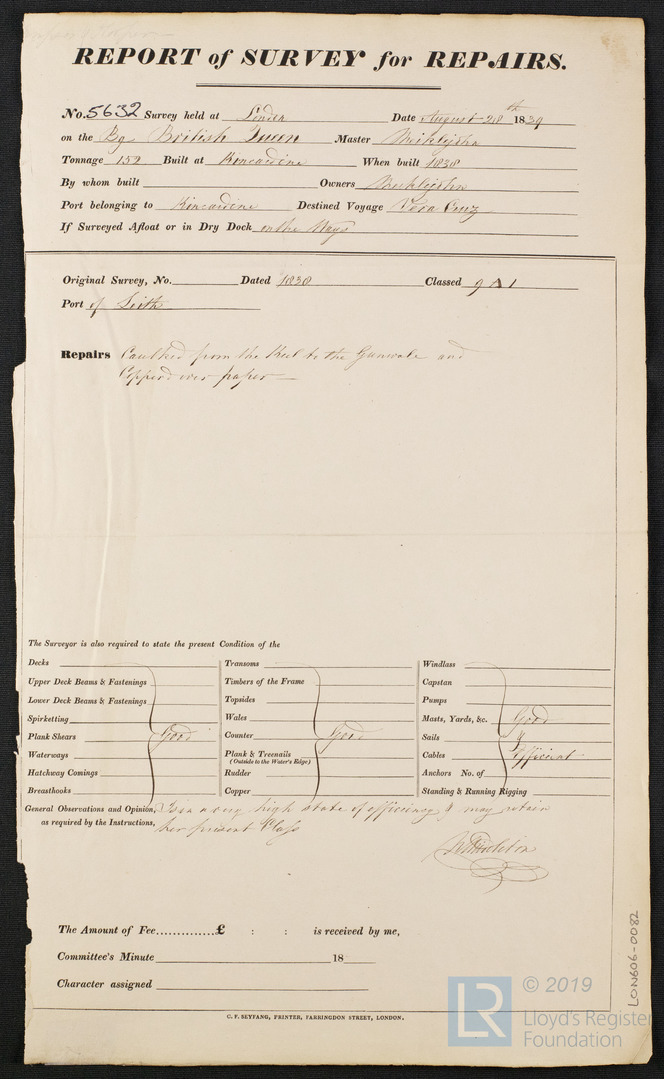 REPORT of SURVEY for REPAIRS.
No. 5632 Survey held at London Date August 28th 1839
on the Bg British Queen Master Meiklejohn
Tonnage 152 Built at Kincardine When built 1838
By whom built Owners Meiklejohn
Port belonging to Kincardine Destined Voyage Vera Cruz
If Surveyed Afloat or in Dry Dock on the Ways
Original Survey, No. Dated 1838 Classed 9 A 1
Port of Leith
Repairs Caulked from the Keel to the Gunwale and
Copperd over paper
The Surveyor is also required to state the present Condition of the
Decks
Upper Deck Beams & Fastenings
Lower Deck Beams & Fastenings
Spirketting
Plank Shears Good
Waterways
Hatchway Comings
Breasthooks
Transoms
Timbers of the Frame
Topsides
Wales
Counter Good
Plank & Treenails
(Outside to the Water's Edge)
Rudder
Copper
Windlass
Capstan
Pumps
Masts, Yards, &c. Good
Sails &
Cables Efficient
Anchors No. of
Standing & Running Rigging
General Observations and Opinion, Is in a very high state of efficiency & may retain
as required by the Instructions, her present Class
The Amount of Fee..............£ : : is received by me,
Committee's Minute 18
Character assigned
C. F. SEYFANG, PRINTER, FARRINGDON STREET, LONDON.
LON606-0082
LR © 2019
Lloyd's Register
Foundation